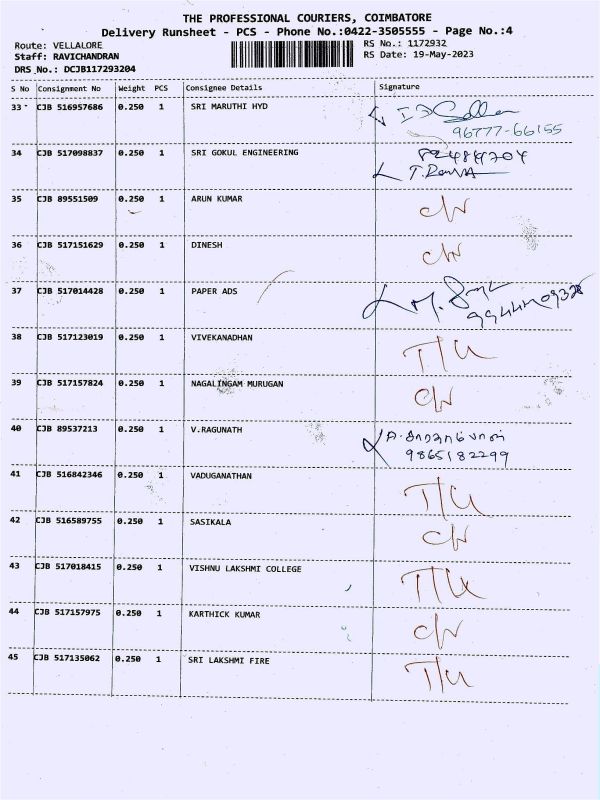 THE PROFESSIONAL COURIERS, COIMBATORE
Delivery Runsheet - PCS - Phone No.:0422-3505555 - Page No.:4
Route: VELLALORE RS No.: 1172932
Staff: RAVICHANDRAN RS Date: 19-May-2023
DRS No.: DCJB117293204
S No Consignment No Weight PCS Consignee Details Signature
33 CJB 516957686 0.250 1 SRI MARUTHI HYD
96777-66155
34 CJB 517098837 0.250 1 SRI GOKUL ENGINEERING
35 CJB 89551509 0.250 1 ARUN KUMAR
36 CJB 517151629 0.250 1 DINESH
37 CJB 517014428 0.250 1 PAPER ADS
38 CJB 517123019 0.250 1 VIVEKANADHAN T/U
39 CJB 517157824 0.250 1 NAGALINGAM MURUGAN
40 CJB 89537213 0.250 1 V.RAGUNATH
9865182299
41 CJB 516842346 0.250 1 VADUGANATHAN T/U
42 CJB 516589755 0.250 1 SASIKALA
43 CJB 517018415 0.250 1 VISHNU LAKSHMI COLLEGE T/U
44 CJB 517157975 0.250 1 KARTHICK KUMAR
45 CJB 517135062 0.250 1 SRI LAKSHMI FIRE T/U